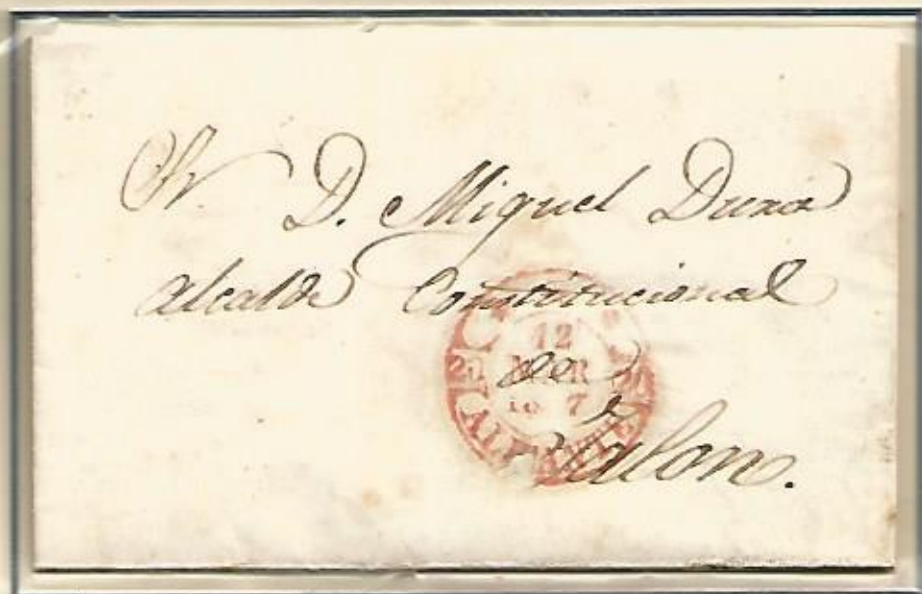 Sr. D. Miguel Duran
Alcalde Constitucional
de
Jalon.
12
MAR
ALICANTE